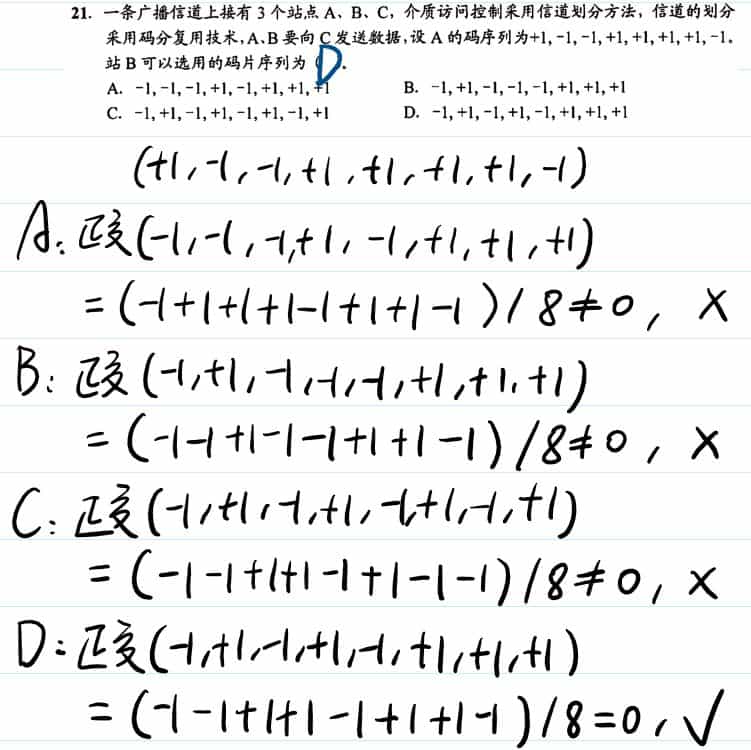 21. 一条广播信道上接有 3 个站点 A、B、C，介质访问控制采用信道划分方法，信道的划分
采用码分复用技术，A、B 要向 C 发送数据，设 A 的码序列为+1, -1, -1, +1, +1, +1, +1, -1。
站 B 可以选用的码片序列为 D.
A. -1, -1, -1, +1, -1, +1, +1, +1 B. -1, +1, -1, -1, -1, +1, +1, +1
C. -1, +1, -1, +1, -1, +1, -1, +1 D. -1, +1, -1, +1, -1, +1, +1, +1
(+1, -1, -1, +1, +1, +1, +1, -1)
A: 正交(-1, -1, -1, +1, -1, +1, +1, +1)
= (-1+1+1+1-1+1+1-1)/8≠0, ×
B: 正交(-1, +1, -1, -1, -1, +1, +1, +1)
= (-1-1+1-1-1+1+1-1)/8≠0, ×
C: 正交(-1, +1, -1, +1, -1, +1, -1, +1)
= (-1-1+1+1-1+1-1-1)/8≠0, ×
D: 正交(-1, +1, -1, +1, -1, +1, +1, +1)
= (-1-1+1+1-1+1+1-1)/8=0, √